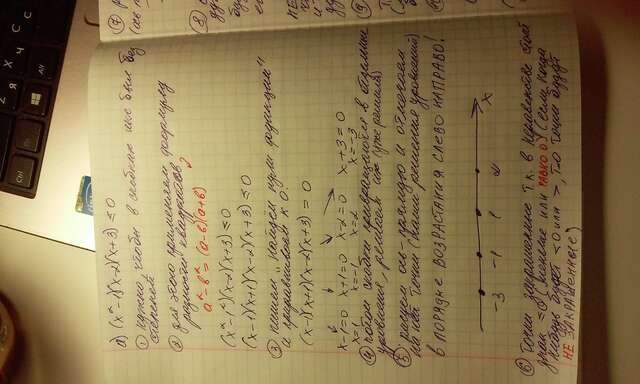 Ctrl
Fn
Alt
Z
Я
X
Ч
C
С
а) (x²-1)(x-2)(x+3) ≤ 0
① нужно, чтобы в скобках икс был без
степеней
② для этого применяем формулу
разности квадратов
a²-b² = (a-b)(a+b)
(x²-1²)(x-2)(x+3) ≤ 0
(x-1)(x+1)(x-2)(x+3) ≤ 0
③ пишем „Найдем нули функции"
и приравниваем к 0.
(x-1)(x+1)(x-2)(x+3) = 0
x-1=0 x+1=0 x-2=0 x+3=0
x=1 x=-1 x=2 x=-3
④ потом скобки превращаются в отдельные
уравнения, решаем их (уже решила)
⑤ рисуем ось-прямую и отмечаем
на ней точки (наши решения уравнений)
в ПОРЯДКЕ ВОЗРАСТАНИЯ СЛЕВО НАПРАВО!
-3 -1 1 2 x
⑥ Точки закрашенные т.к. в неравенстве стоит
знак ≤0 (меньше или РАВНО 0) (если когда
нибудь будет <0 или >, то точки будут
НЕ ЗАКРАШЕННЫЕ)
⑦
(ось
⑧
НЕ
⑨